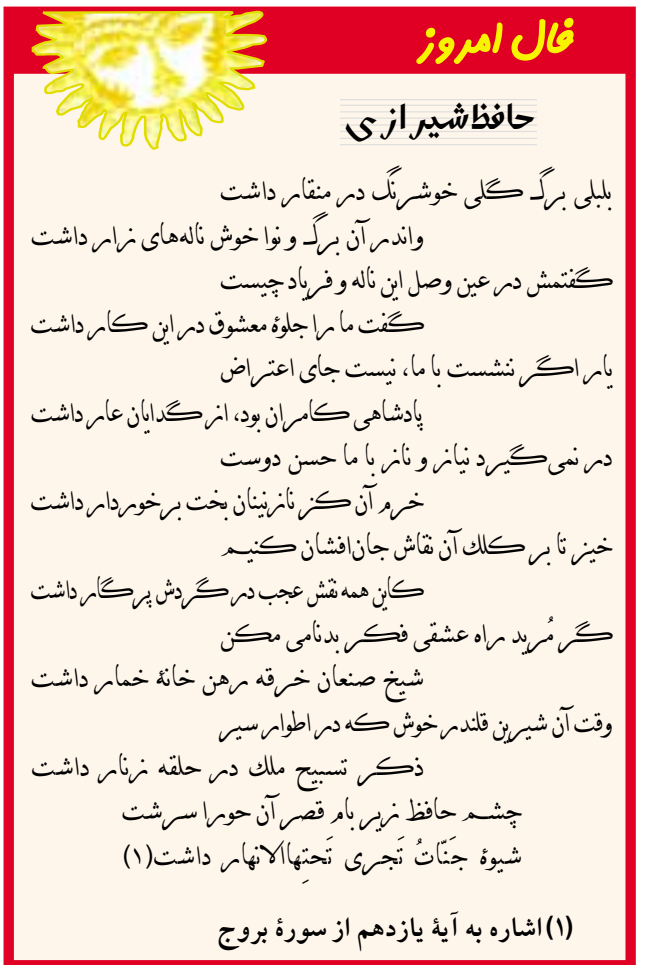 فال امروز
حافظ شیرازی
بلبلی برگ گلی خوشرنگ در منقار داشت
واندر آن برگ و نوا خوش ناله‌های زار داشت
گفتمش در عین وصل این ناله و فریاد چیست
گفت ما را جلوهٔ معشوق در این کار داشت
یار اگر ننشست با ما، نیست جای اعتراض
پادشاهی کامران بود، از گدایان عار داشت
در نمی‌گیرد نیاز و ناز با ما حسن دوست
خرم آن کز نازنینان بخت برخوردار داشت
خیز تا بر کلك آن نقاش جان‌افشان کنیم
کاین همه نقش عجب در گردش پرگار داشت
گر مُرید راه عشقی فکر بدنامی مکن
شیخ صنعان خرقه رهن خانهٔ خمار داشت
وقت آن شیرین قلندر خوش که در اطوار سیر
ذکر تسبیح ملك در حلقه زنار داشت
چشم حافظ زیر بام قصر آن حورا سرشت
شیوهٔ جَنّاتُ تَجری تَحتِهاالانهار داشت(۱)
(۱)اشاره به آیهٔ یازدهم از سورهٔ بروج